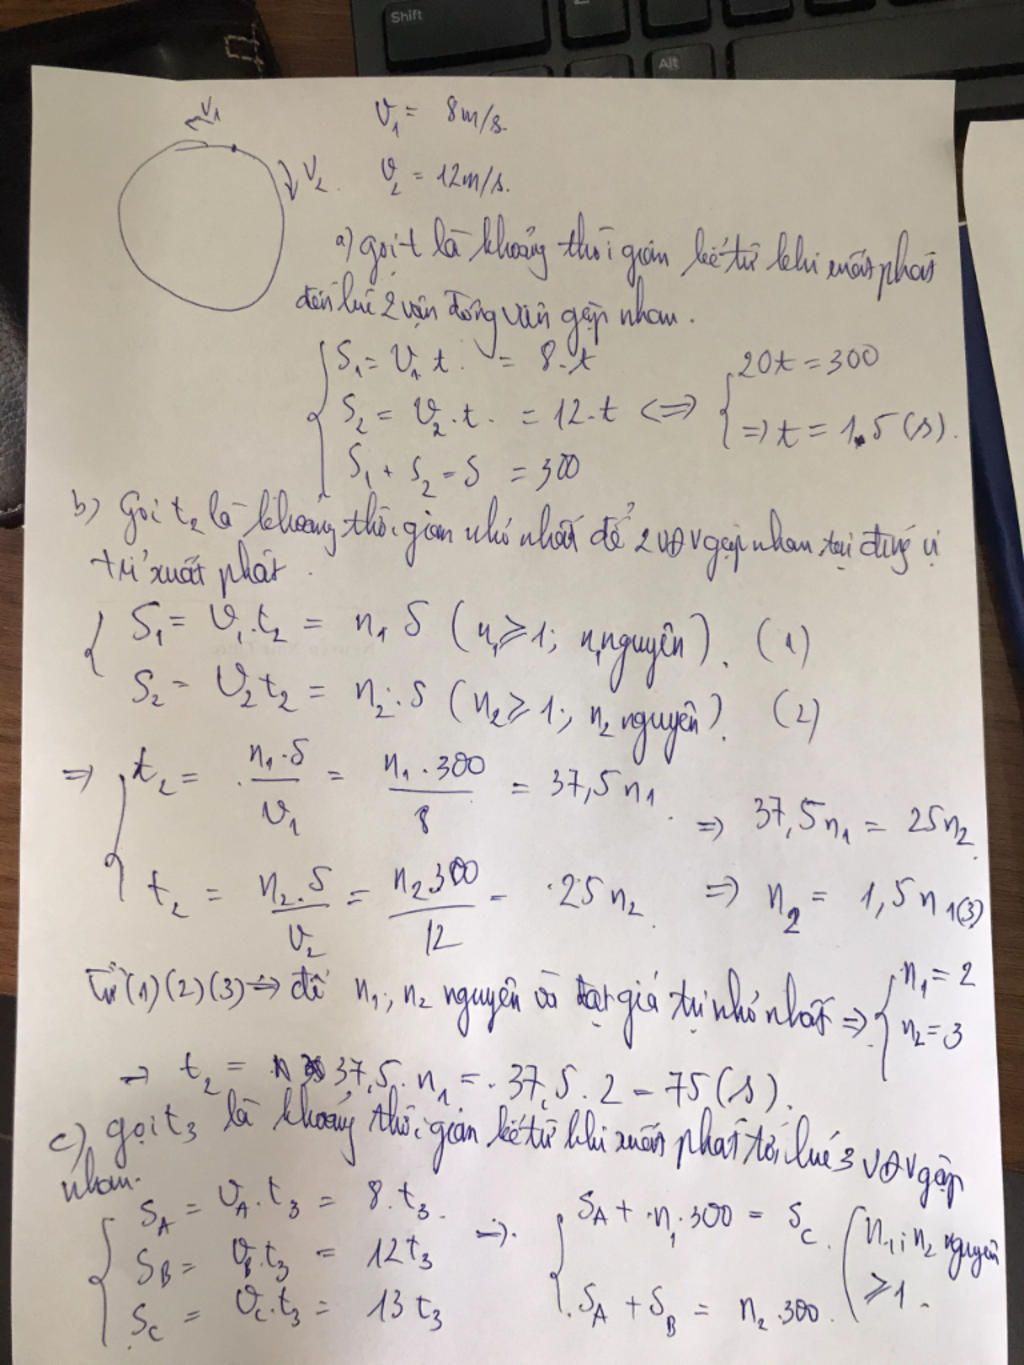 Shift
Alt
V₁
V₂
V₁ = 8m/s.
V₂ = 12m/s.
a) gọi t là khoảng thời gian kể từ khi xuất phát
đến lúc 2 vận động viên gặp nhau.
S₁ = V₁ t. = 8.t
S₂ = V₂.t. = 12.t <=> 20t = 300
S₁ + S₂ = S = 300 => t = 15 (s).
b) Gọi t₂ là khoảng thời gian nhỏ nhất để 2 VĐV gặp nhau tại đúng vị
trí xuất phát.
S₁ = V₁.t₂ = n₁ S (n₁ ≥ 1; n₁ nguyên). (1)
S₂ = V₂ t₂ = n₂.S (n₂ ≥ 1; n₂ nguyên). (2)
=> t₂ = n₁.S / V₁ = n₁.300 / 8 = 37,5 n₁. => 37,5 n₁ = 25 n₂
t₂ = n₂.S / V₂ = n₂ 300 / 12 = 25 n₂ => n₂ = 1,5 n₁ (3)
Từ (1) (2) (3) => để n₁; n₂ nguyên và đạt giá trị nhỏ nhất => n₁ = 2
n₂ = 3
=> t₂ = 37,5. n₁ = 37,5. 2 = 75 (s).
c) gọi t₃ là khoảng thời gian kể từ khi xuất phát tới lúc 3 VĐV gặp
nhau.
S_A = V_A.t₃ = 8.t₃. => S_A + n₁.300 = S_C. (n₁; n₂ nguyên
S_B = V_B.t₃ = 12t₃ ≥ 1.
S_C = V_C.t₃ = 13t₃ S_A + S_B = n₂.300.